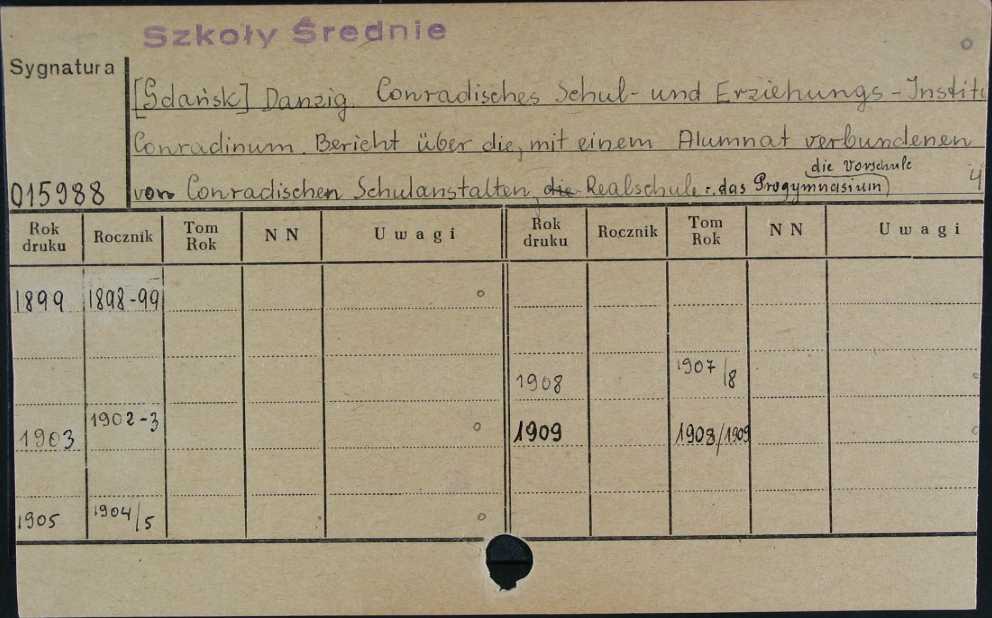 Szkoły Średnie
Sygnatura
[Gdańsk] Danzig. Conradisches Schul- und Erziehungs-Institu
Conradinum. Bericht über die, mit einem Alumnat verbundenen
die Vorschule
015988 von Conradischen Schulanstalten, die Realschule: das Progymnasium) 4
Rok druku Rocznik Tom Rok NN Uwagi Rok druku Rocznik Tom Rok NN Uwagi
1899 1898-99
1908 1907/8
1903 1902-3 1909 1908/1909
1905 1904/5